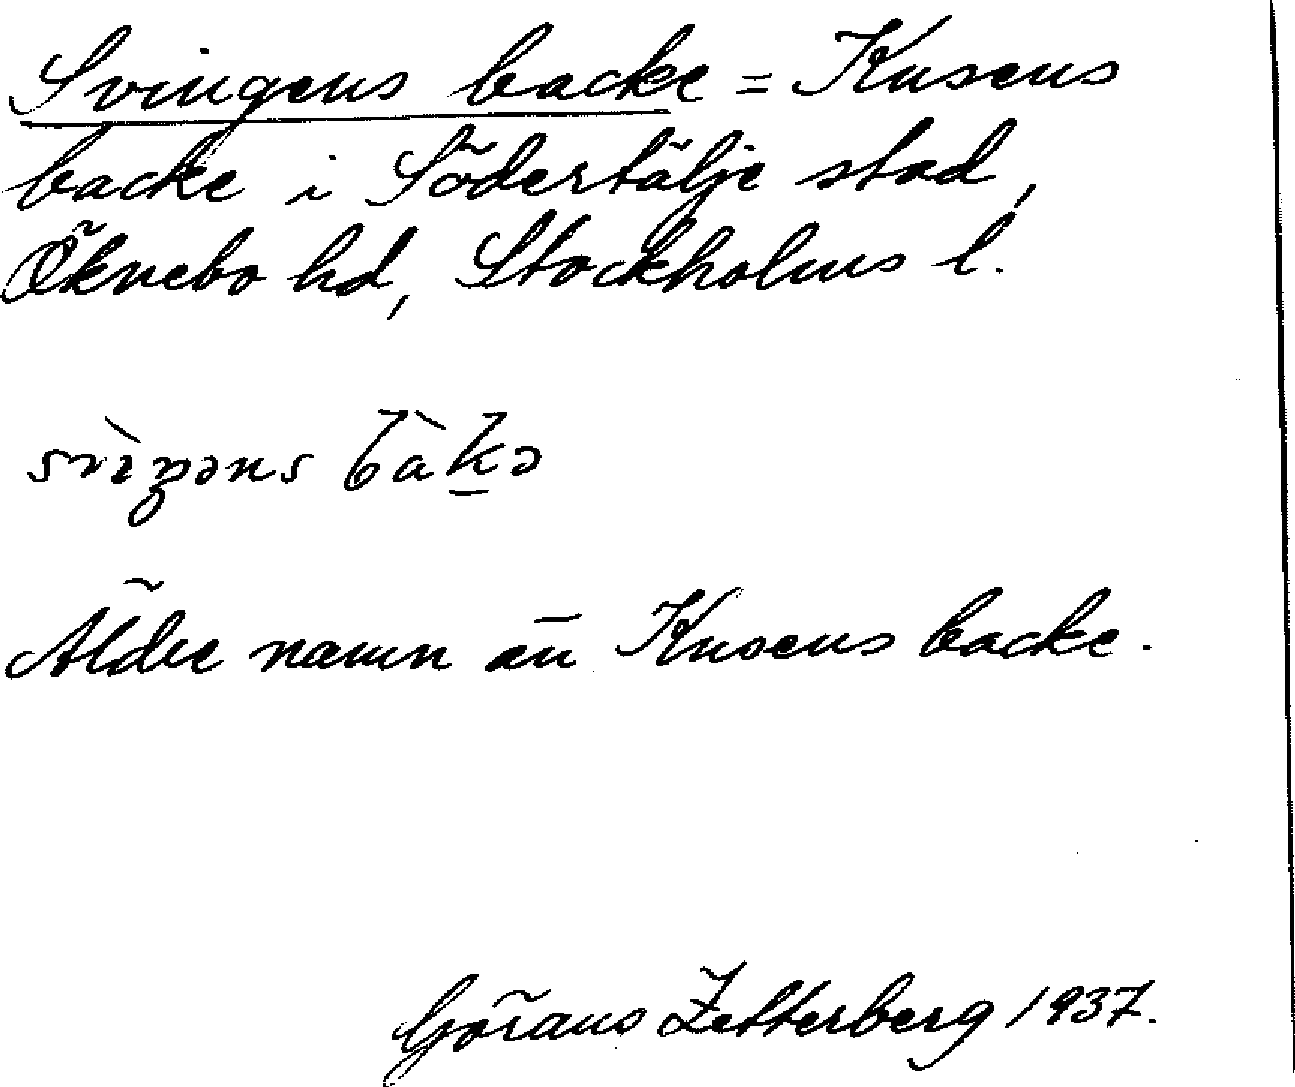 Svingens backe = Knsens
backe i Södertälje stad,
Öknebo hd, Stockholms l.
Äldre namn än Knsens backe.
Görans Zetterberg 1937.